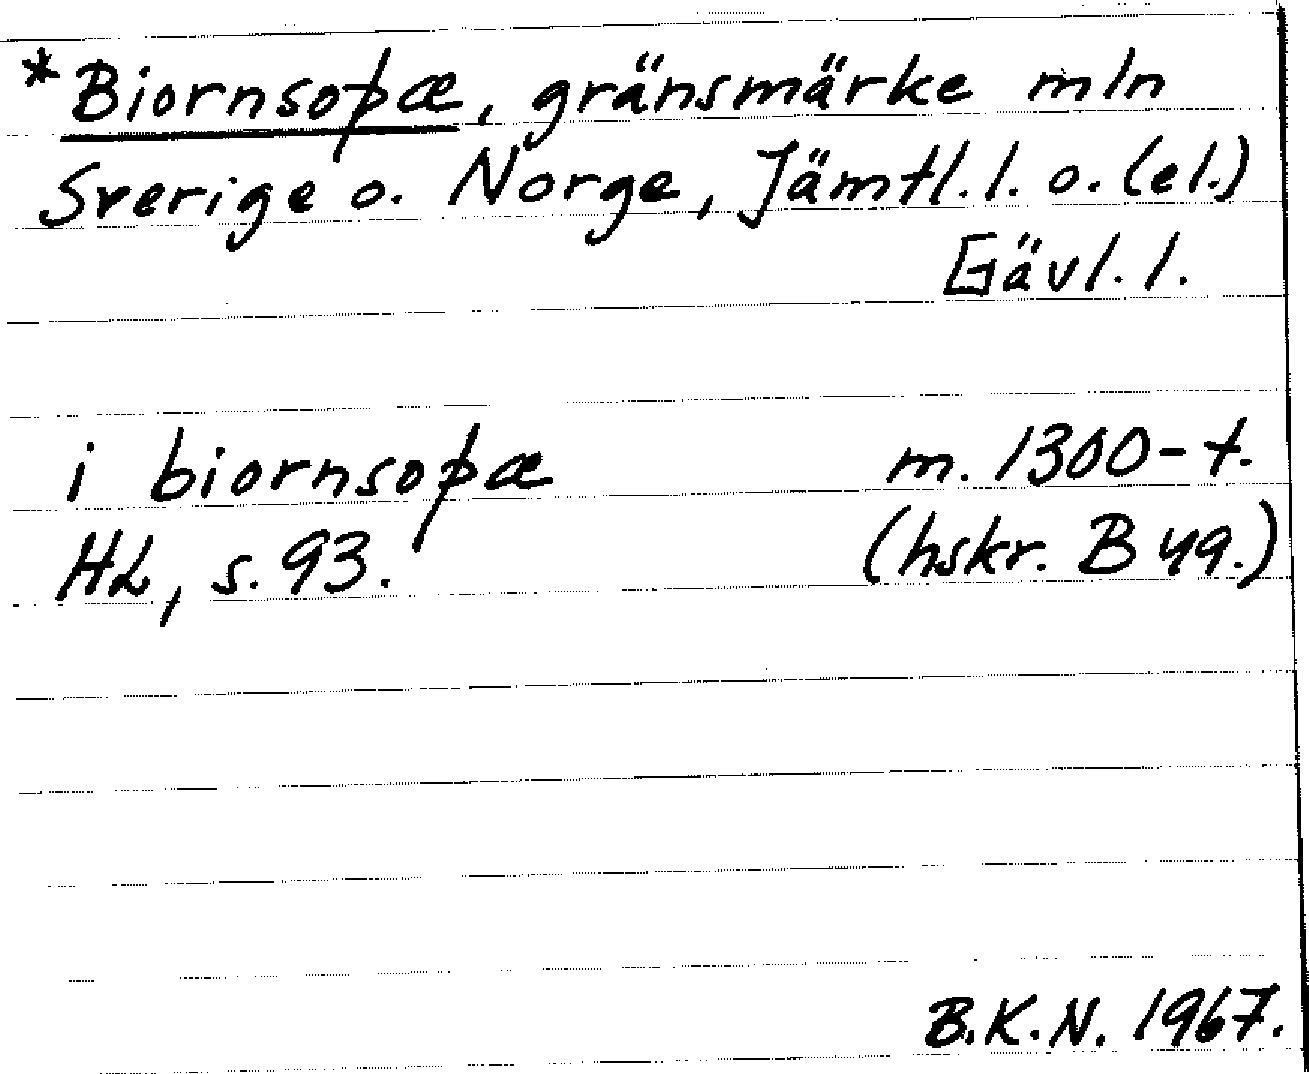 *Biornsoþæ, gränsmärke mln
Sverige o. Norge, Jämtl. l. o. (el.)
Gävl. l.
i biornsoþæ m. 1300-t.
HL, s. 93. (hskr. B 49.)
B.K.N. 1967.